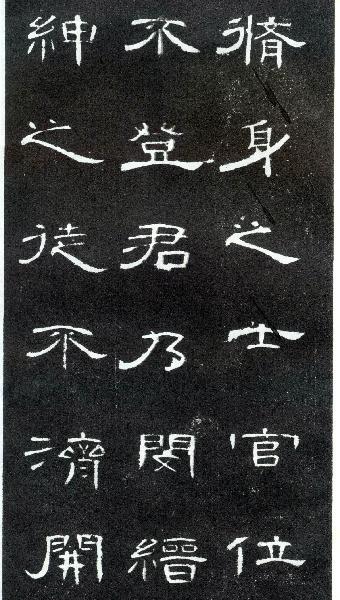 脩身之士官位
不登君乃閔縉
紳之徒不濟開